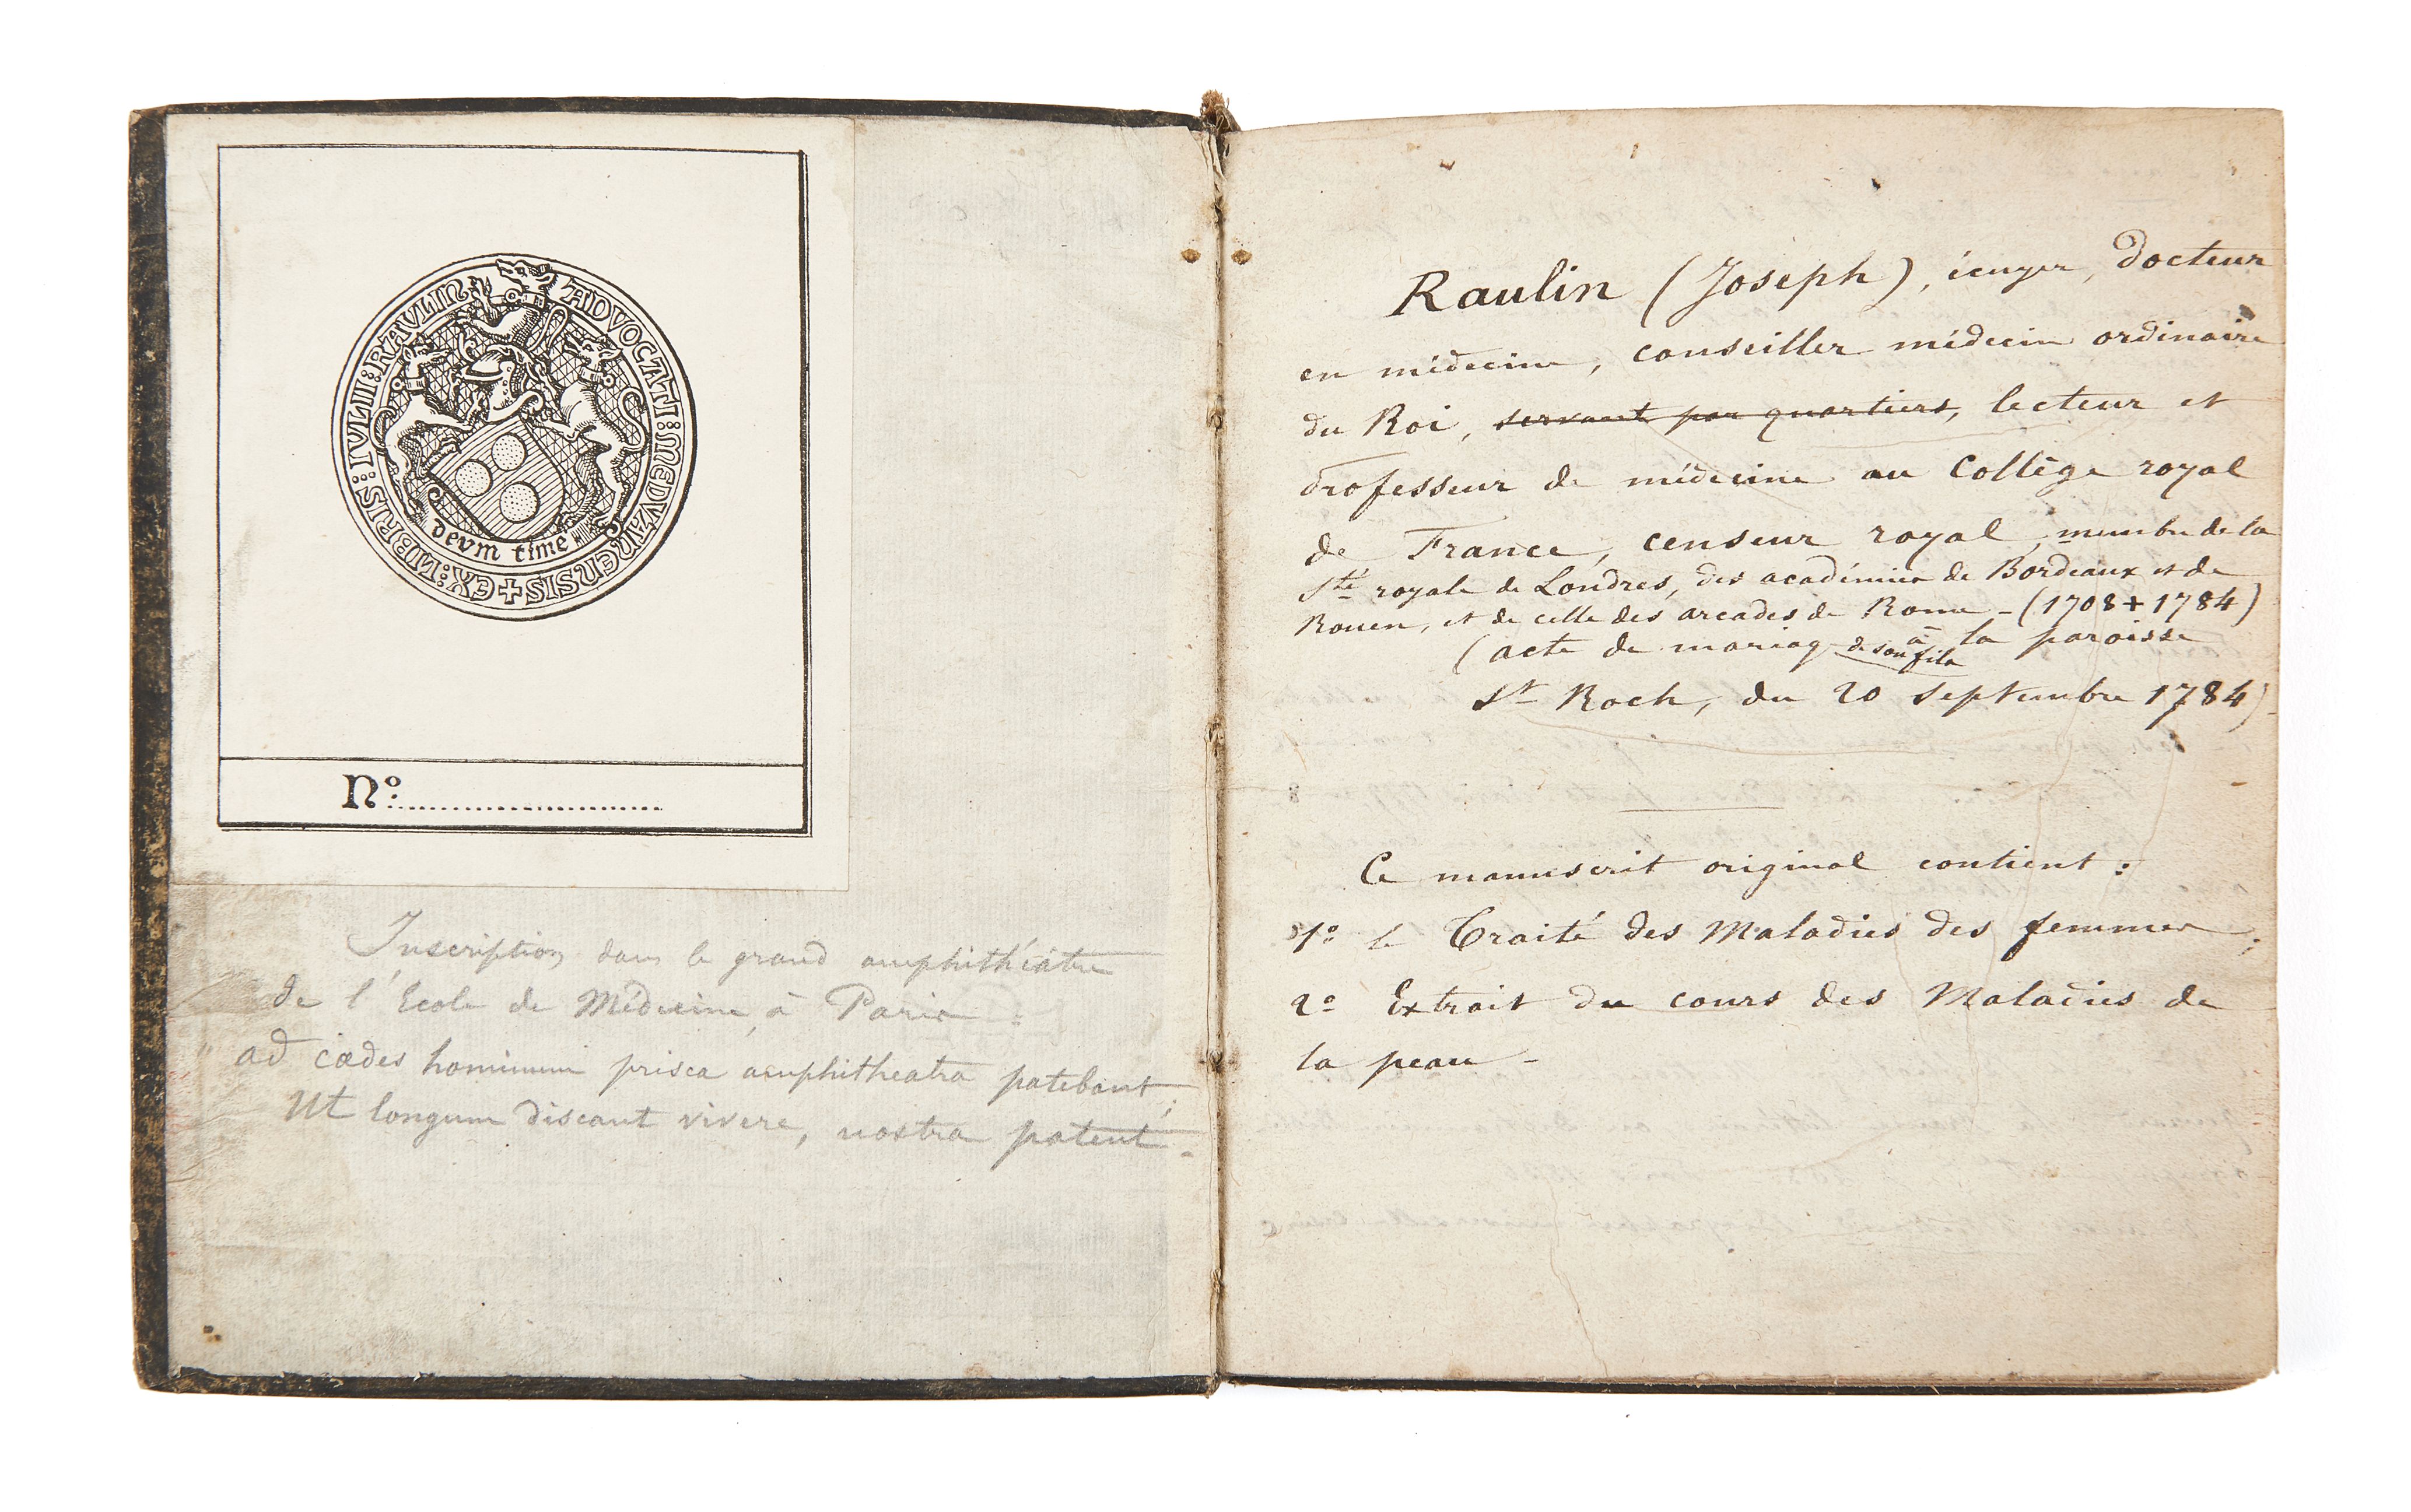 EX:LIBRIS:IVLII:RAVLIN ADVOCATI:MEDVANENSIS
devm time
No
Inscription dans le grand amphithéâtre
de l'Ecole de Médecine, à Paris :
ad cædes hominum prisca amphitheatra patebant,
Ut longum discant vivere, nostra patent.
Raulin (Joseph), écuyer, docteur
en médecine, conseiller médecin ordinaire
du Roi, servant par quartiers, lecteur et
professeur de médecine au Collège royal
de France, censeur royal, membre de la
Sté royale de Londres, des académies de Bordeaux et de
Rouen, et de celle des arcades de Rome - (1708+1784)
(acte de mariag de son fils à la paroisse
St Roch, du 20 septembre 1784)
Ce manuscrit original contient :
1o le Traité des Maladies des femmes ;
2o Extrait du cours des Maladies de
la peau -